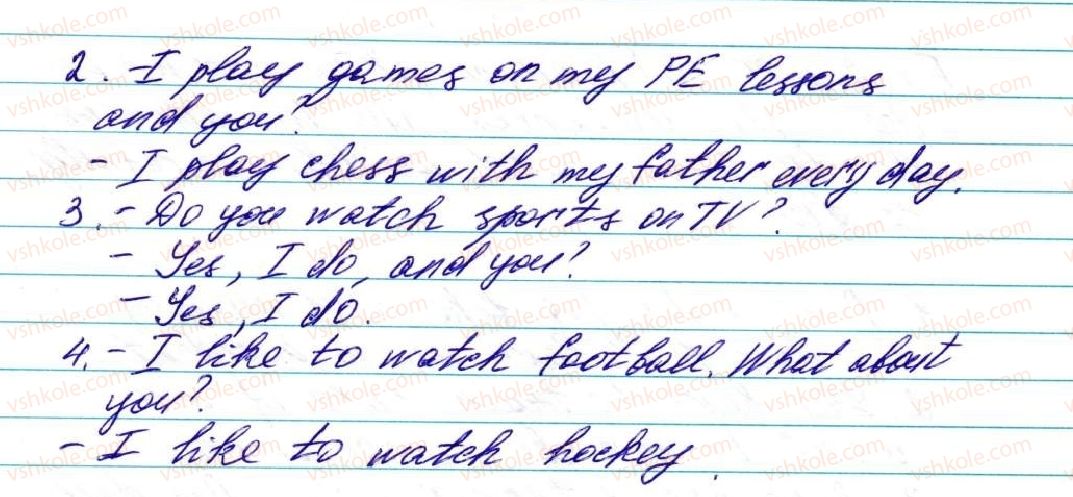 2. - I play games on my PE lessons
and you?
- I play chess with my father every day.
3. - Do you watch sports on TV?
- Yes, I do, and you?
- Yes, I do.
4. - I like to watch football. What about
you?
- I like to watch hockey.